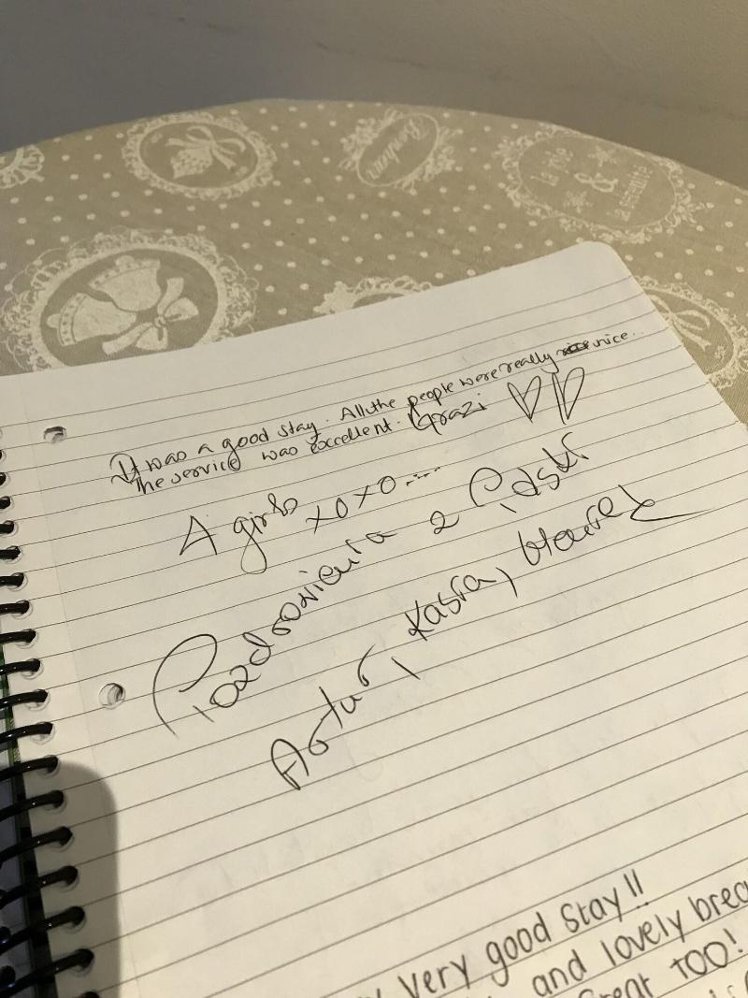 Bonheur
la joie
&
la sérénité
It was a good stay. All the people were really nice.
The service was excellent. Grazi
4 girls xoxo....
Pozdrowienia z Polski
Artur, Kasia,
very good stay!!
and lovely
great too!